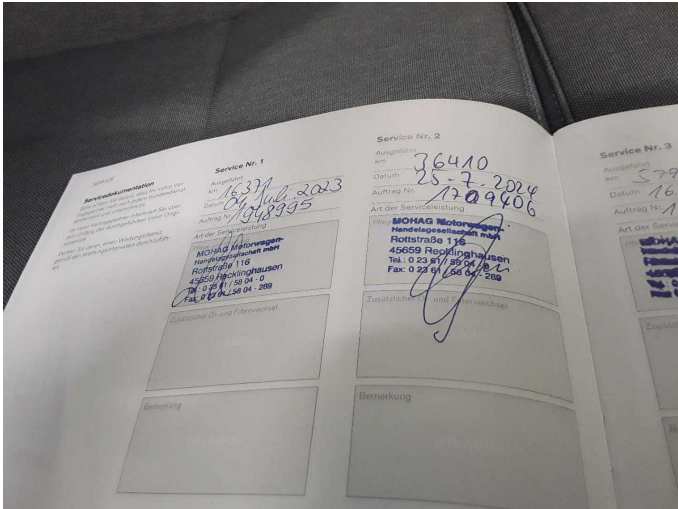 SERVICE
Servicedokumentation
Service Nr. 1
Ausgeführt
km 16371
Datum 04. Juli. 2023
Auftrag Nr. 1948995
Art der Serviceleistung
MOHAG Motorwagen-
Handelsgesellschaft mbH
Rottstraße 116
45659 Recklinghausen
Tel.: 0 23 61 / 58 04 - 0
Fax: 0 23 61 / 58 04 - 289
Zusätzlicher Öl- und Filterwechsel
Bemerkung
Service Nr. 2
Ausgeführt
km 36410
Datum 25.7.2024
Auftrag Nr. 1709406
Art der Serviceleistung
MOHAG Motorwagen-
Handelsgesellschaft mbH
Rottstraße 116
45659 Recklinghausen
Tel.: 0 23 61 / 58 04 - 0
Fax: 0 23 61 / 58 04 - 289
Zusätzlicher Öl- und Filterwechsel
Bemerkung
Service Nr. 3
Ausgeführt
km 579
Datum 16.
Auftrag Nr.
Art der Ser